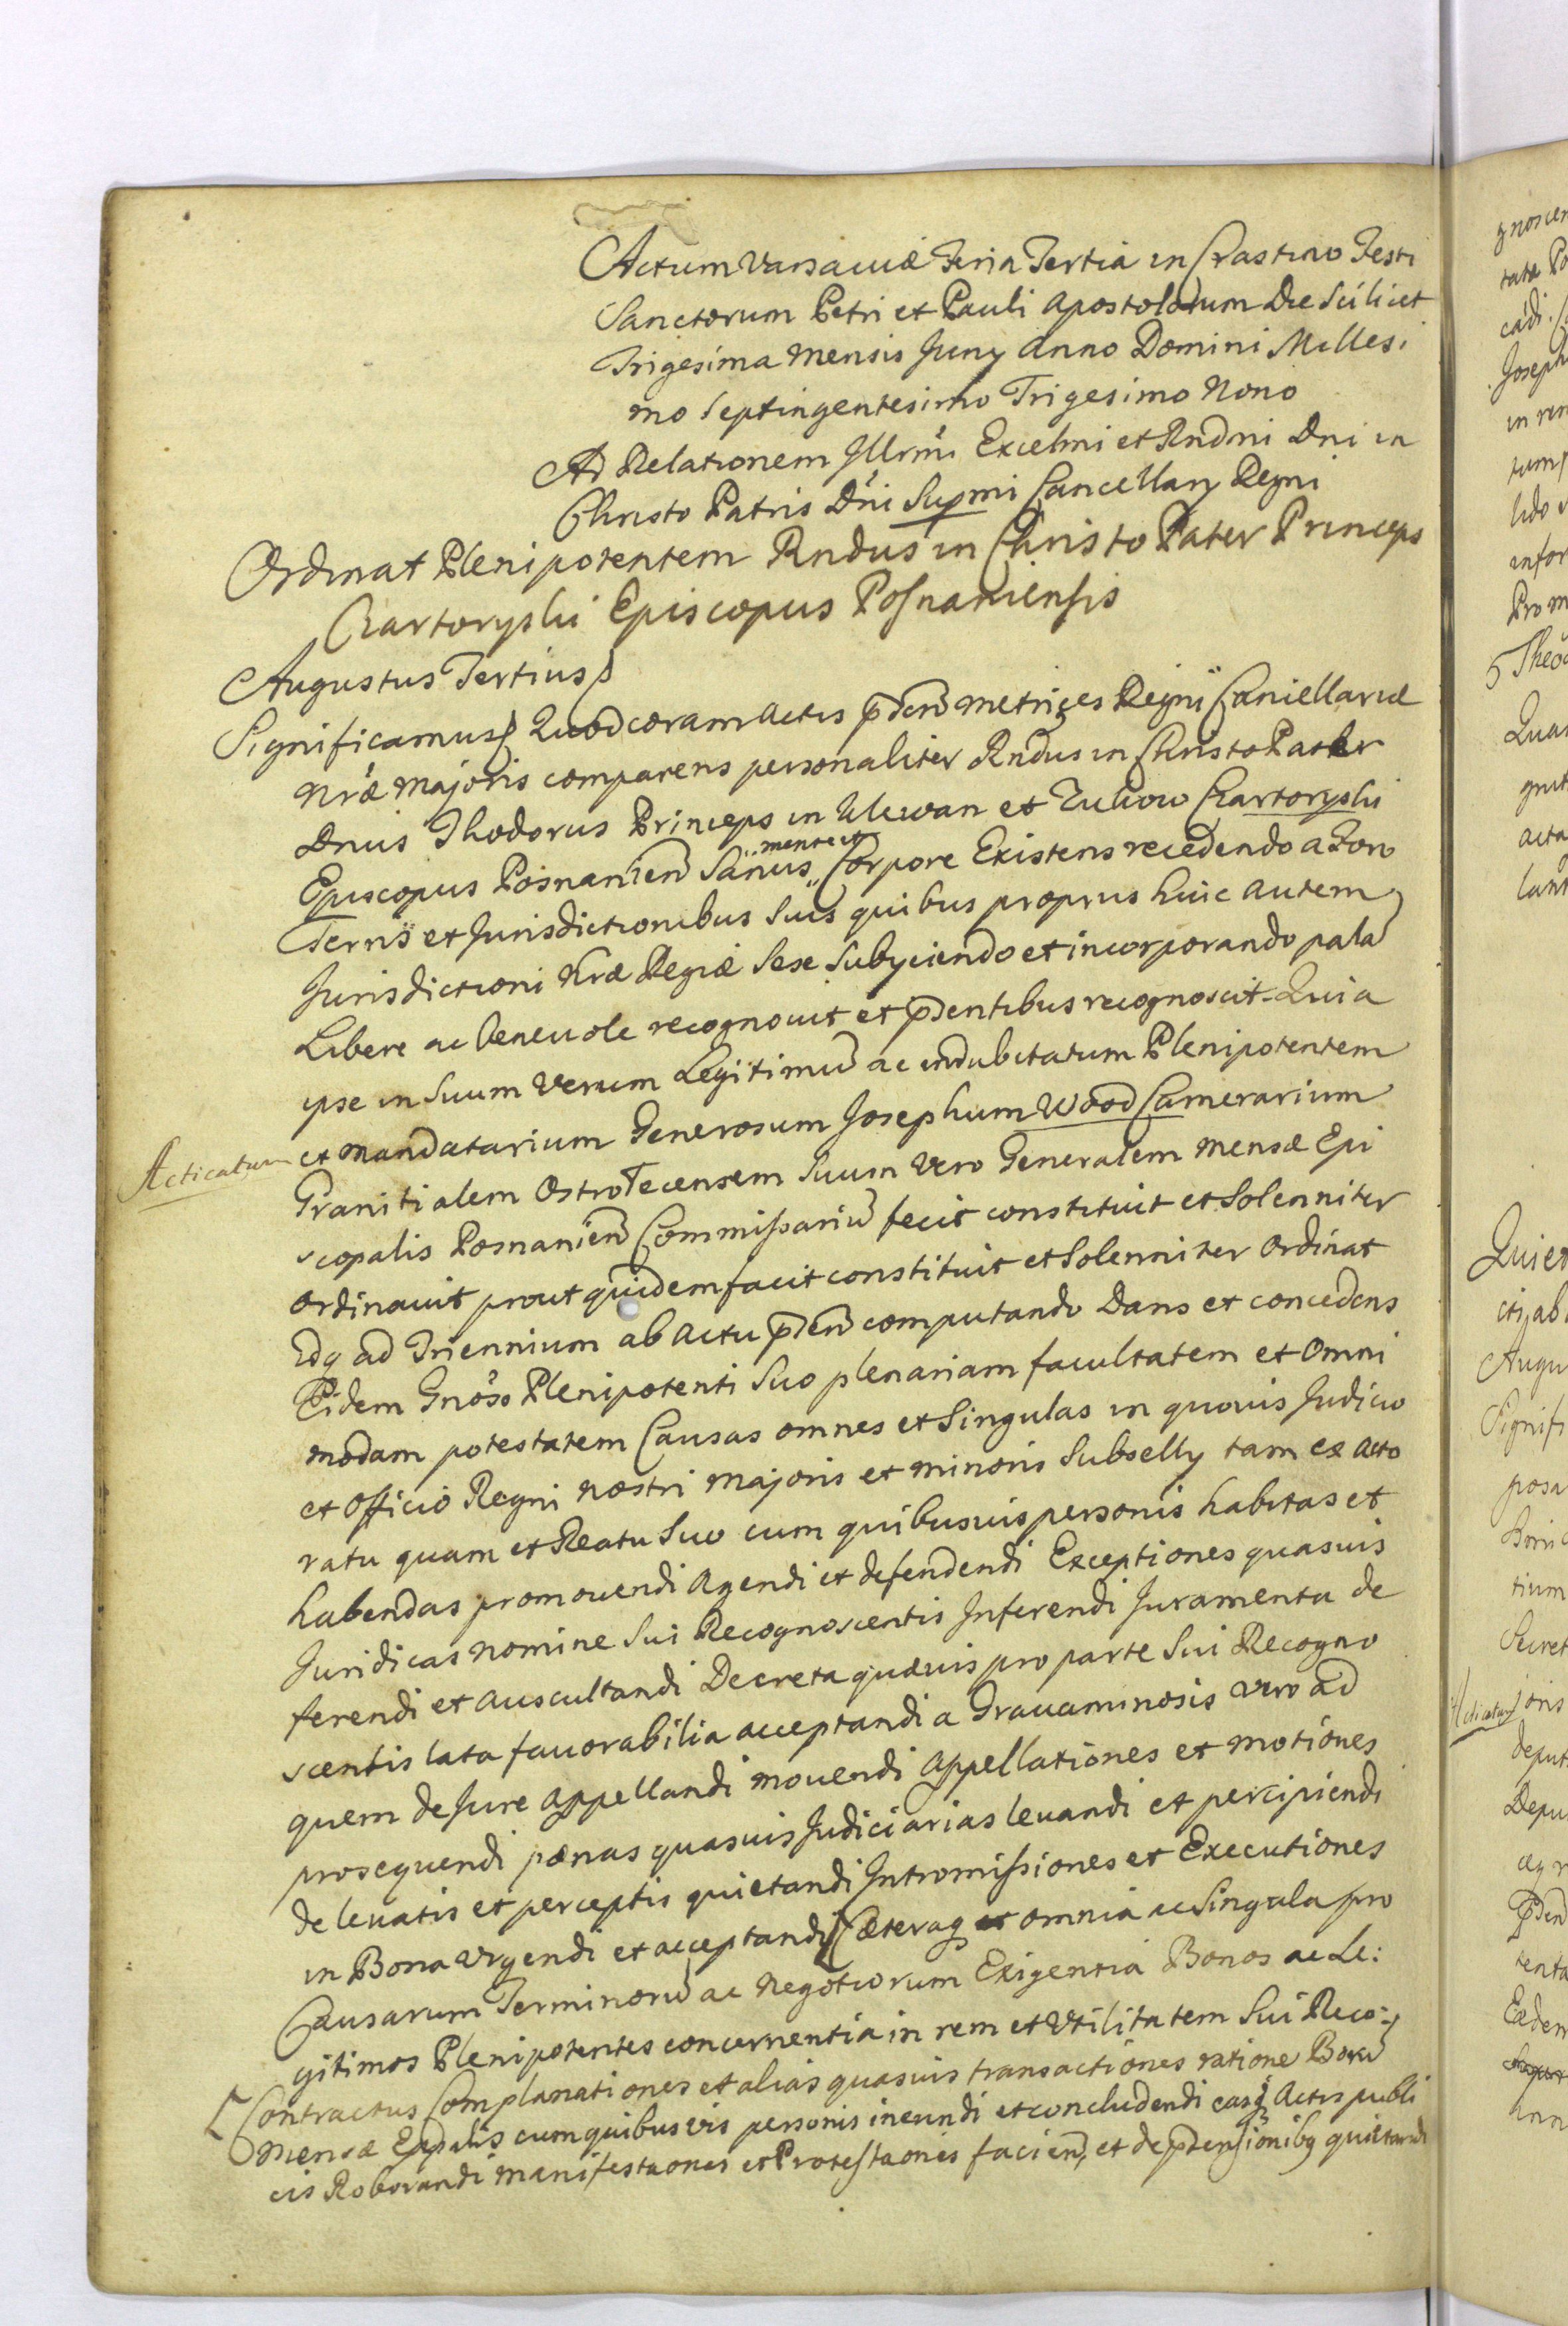 Actum Varsaviæ Feria Tertia in Crastino Festi
Sanctorum Petri et Pauli Apostolorum Die Scilicet
Trigesima Mensis Juny Anno Domini Millesi
mo Septingentesimo Trigesimo Nono
Ad Relationem Illrmi Excelmi et Rndmi Dni in
Christo Patris Dni Supmi Cancellary Regni
Ordinat Plenipotentem Rndus in Christo Pater Princeps
Czartoryski Episcopus Posnaniensis
Augustus Tertius
Significamus Quod coram Actis pdentĩ Metrices Regni Cancellariæ
Nræ Majoris comparens personaliter Rndus in Christo Pater
Dnus Thodorus Princeps in Klewan et Zukow Czartoryski
Episcopus Posnanien Sanus mente et Corpore Existens recedendo a Foro
Terris et Jurisdictionibus Suis quibus proprus huic autem
Jurisdictioni Nræ Regiæ Sese Subyciendo et incorporando pala
Libere ac benevole recognovit et pdentibus recognoscit Quia
ipse in Suum Verum Legitimu ac indubitatum Plenipotentem
Acticatum
et Mandatarium Generosum Josephum Wood Camerarium
Granitialem Ostrotecensem Suum Vero Generalem Mensæ Epi
scopalis Posnanien Commissariu fecit constituit et Solenniter
Ordinavit prout quidem facit constituit et Solenniter Ordinat
idq ad Triennium ab Actu pden computando Dans et concedens
Eidem Gnoso Plenipotenti Suo plenariam facultatem et Omni
modam potestatem Causas omnes et Singulas in quovis Judicio
et Officio Regni nostri Majoris et minoris Subselly tam ex Acto
ratu quam et Reatu Suo cum quibusvis personis habitas et
habendas promovendi Agendi et defendendi Exceptiones quasvis
Juridicas nomine Sui Recognoscentis Inferendi Juramenta de
ferendi et Auscultandi Decreta quævis pro parte Sui Recogno
scentis lata favorabilia acceptandi a Gravaminosis vero ad
quem de Jure Appellandi movendi Appellationes et motiones
prosequendi pænas quasvis Judiciarias levandi et percipiendi
de levatis et perceptis quietandi Intromissiones et Executiones
in Bona Urgendi et acceptandi Cæteraq et omnia ac Singula pro
Causarum Terminoru ac Negotiorum Exigentia Bonos ac Le:
gitimos Plenipotentes concernentia in rem et Utilitatem Sui Reco:
Contractus Complanationes et alias quasvis transactiones ratione Boru
Mensæ Eppalis cum quibusvis personis ineundi et concludendi easq Actis publi
cis Roborandi Manifestaones et Protestaones facien, et de ptensionibq quietandi